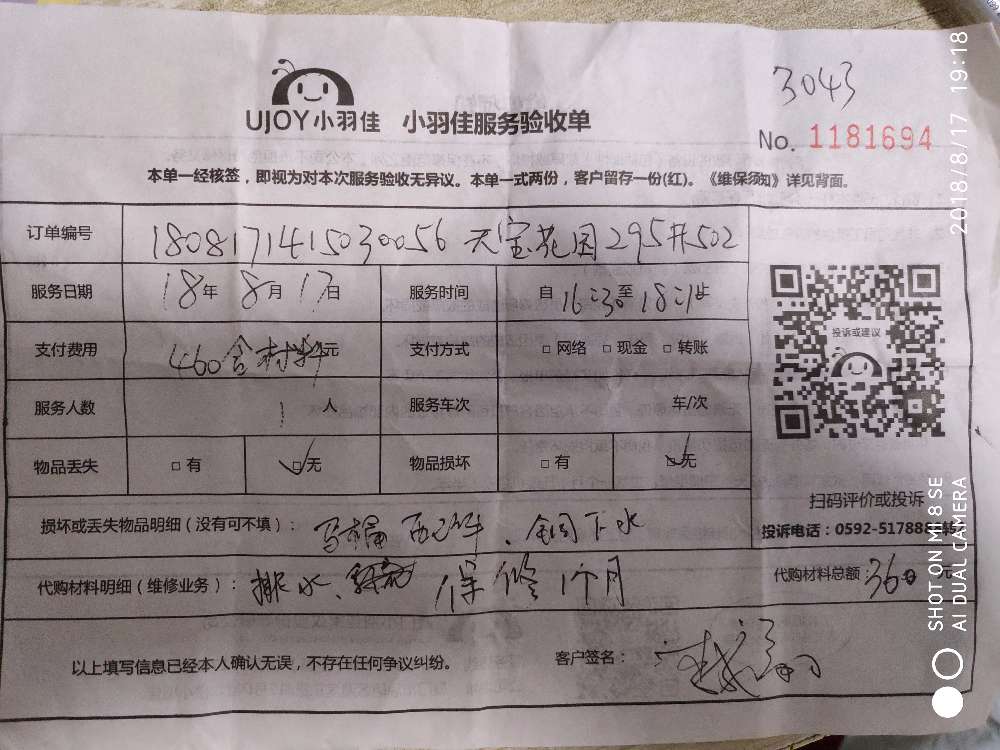 3043
UJOY小羽佳 小羽佳服务验收单
No. 1181694
本单一经核签，即视为对本次服务验收无异议。本单一式两份，客户留存一份(红)。《维保须知》详见背面。
订单编号 1808171415030056 天宝花园295#502
服务日期 18年 8月 17日 服务时间 自16:30至18:21止
支付费用 460含材料元 支付方式 □ 网络 □ 现金 □ 转账
服务人数 1 人 服务车次 车/次
物品丢失 □ 有 ☑无 物品损坏 □ 有 ☑无
投诉或建议
扫码评价或投诉
投诉电话：0592-517888转
损坏或丢失物品明细（没有可不填）： 马桶 配件、全铜下水
代购材料明细（维修业务）： 排水、 保修1个月
代购材料总额： 360 元
以上填写信息已经本人确认无误，不存在任何争议纠纷。 客户签名：
2018/8/17 19:18
SHOT ON MI 8 SE
AI DUAL CAMERA